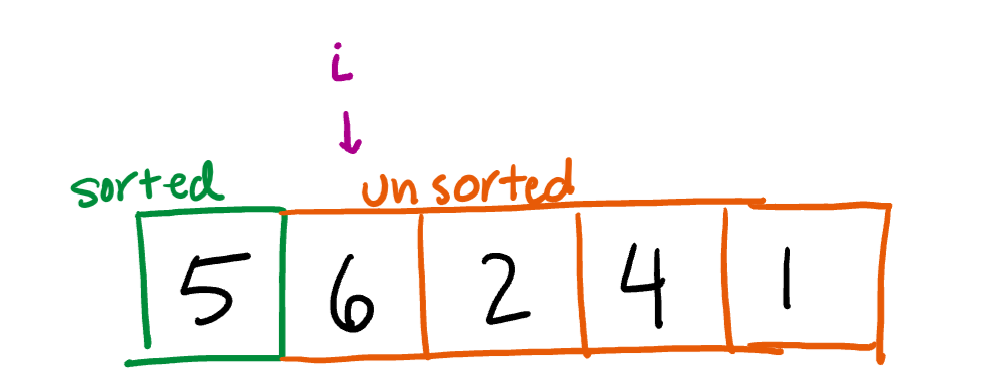 i
sorted unsorted
5 6 2 4 1